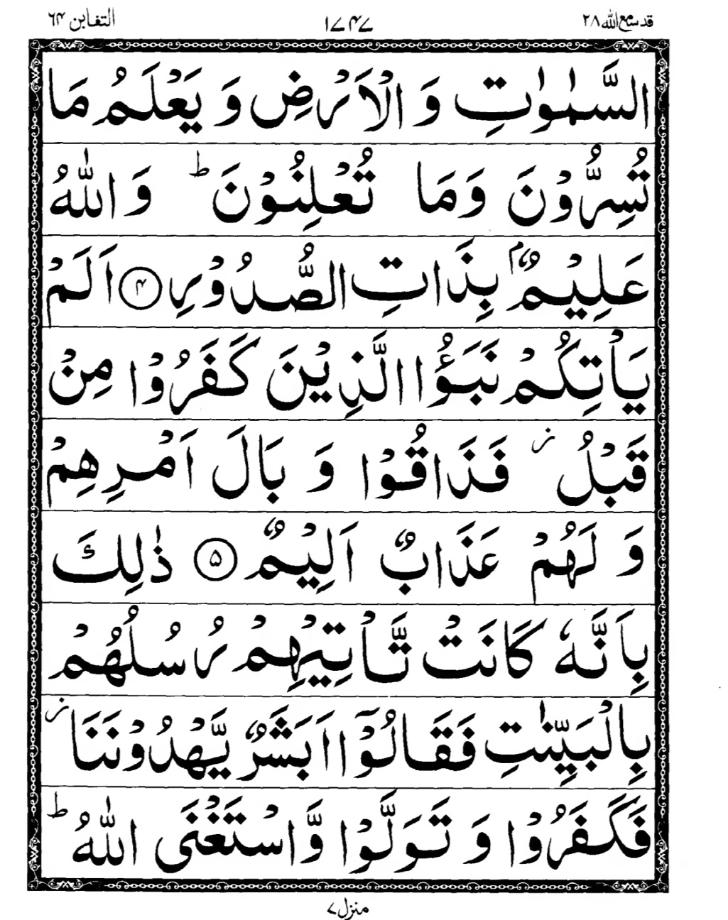 قد سمع الله ٢٨ ١٧٤٧ التغابن ٦٤
السَّمٰوٰتِ وَ الْاَرْضِ وَ يَعْلَمُ مَا
تُسِرُّوْنَ وَمَا تُعْلِنُوْنَ ؕ وَاللّٰهُ
عَلِيْمٌۢ بِذَاتِ الصُّدُوْرِ ۴ اَلَمْ
يَاْتِكُمْ نَبَؤُا الَّذِيْنَ كَفَرُوْا مِنْ
قَبْلُ ز فَذَاقُوْا وَ بَالَ اَمْرِهِمْ
وَ لَهُمْ عَذَابٌ اَلِيْمٌ ۵ ذٰلِكَ
بِاَنَّهٗ كَانَتْ تَّاْتِيْهِمْ رُسُلُهُمْ
بِالْبَيِّنٰتِ فَقَالُوْۤا اَبَشَرٌ يَّهْدُوْنَنَا ز
فَكَفَرُوْا وَ تَوَلَّوْا وَّاسْتَغْنَى اللّٰهُ ؕ
منزل ٧